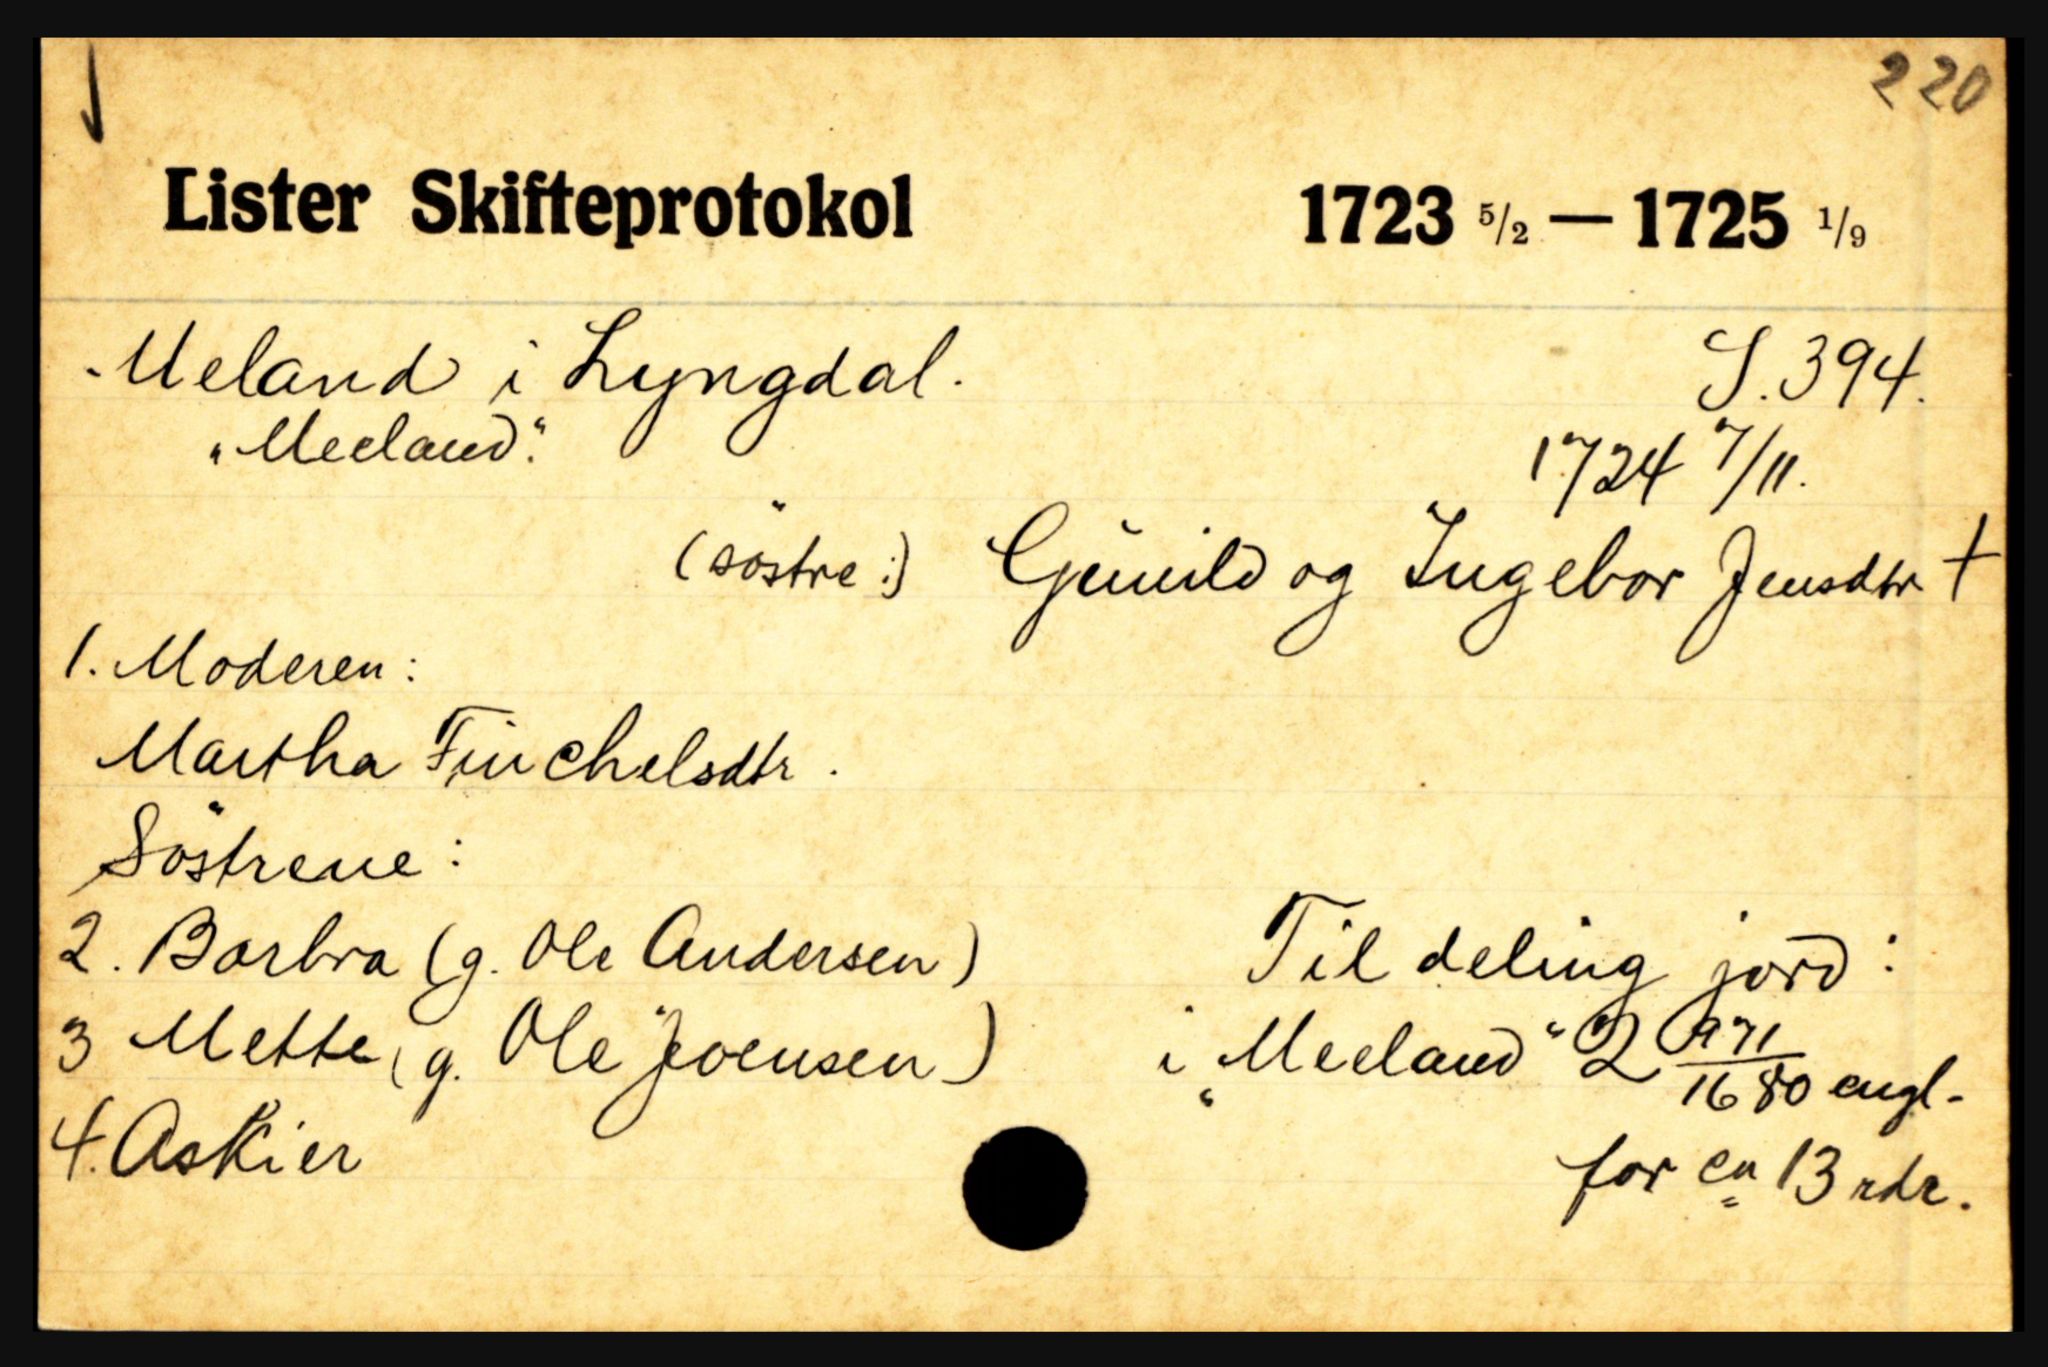 220
Lister Skifteprotokol 1723 5/2 — 1725 1/9
Meland i Lyngdal. S. 394.
"Meeland". 1724 7/11.
(söstre :) Gunild og Ingebor Jensdtr †
1. Moderen:
Martha Finchelsdtr.
Söstrene:
2. Barbra (g. Ole Andersen) Til deling jord:
3 Mette (g. Ole Joensen) i "Meeland" 2 971/1680 engl.
4. Askier
for ca 13 rdr.